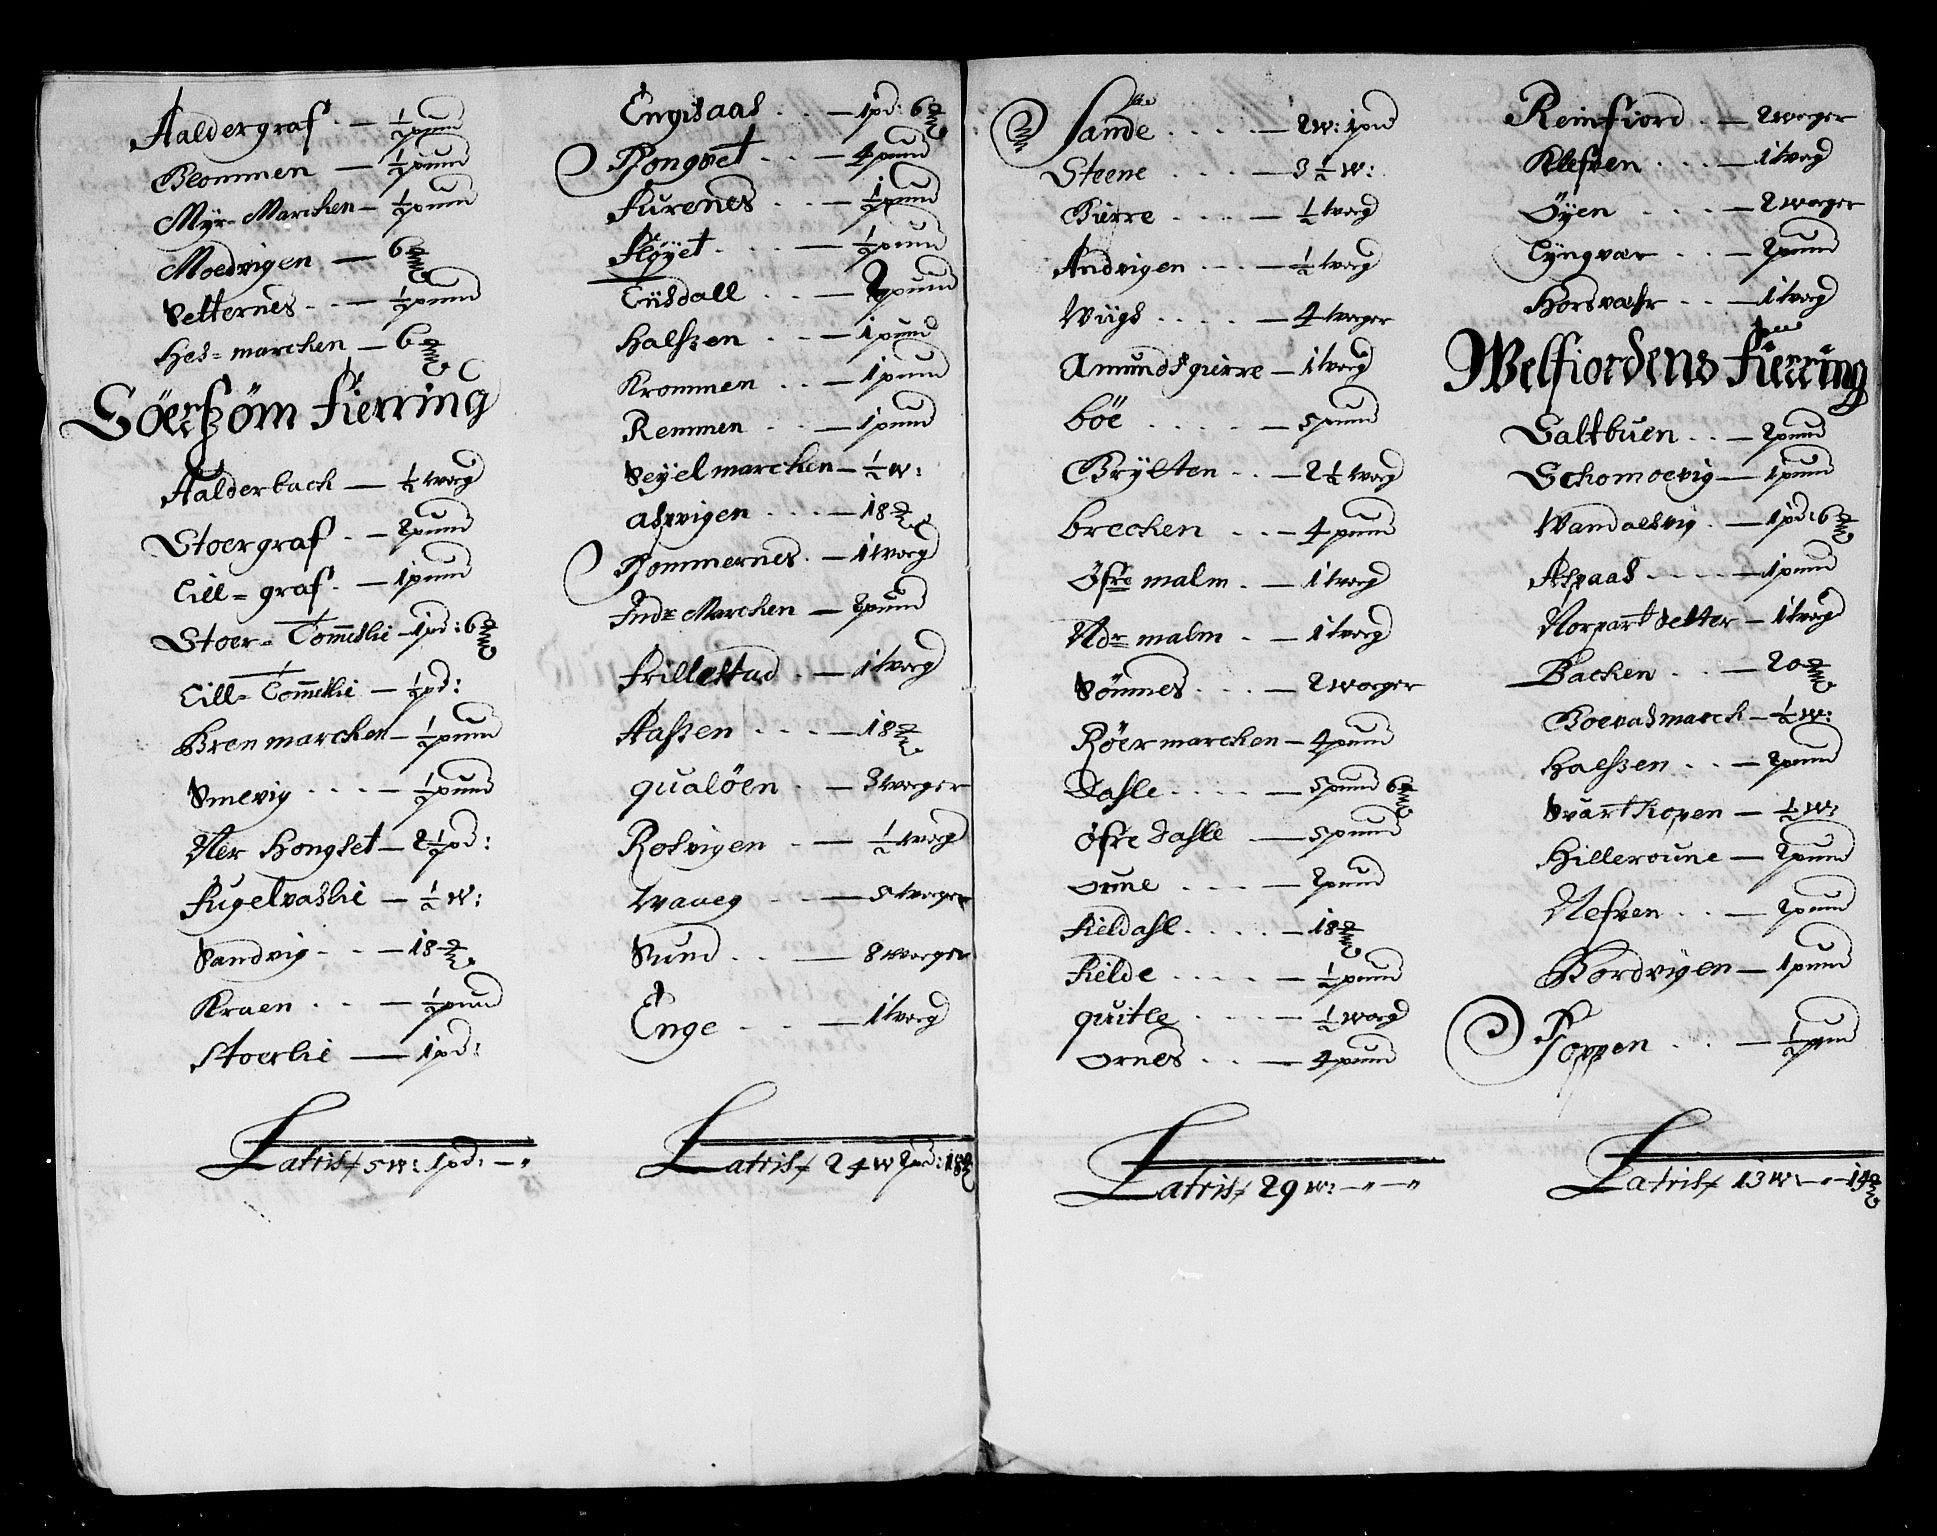 Aaldergraf . — ½ pund
Blommen — ½ pund
Myr-Marchen — ½ pund
Moedvigen — 6 ℔
Setternes . . — ½ pund
Hes=marchen — 6 ℔
Söerszöm fierring
Aalderbach — ½ woeg
Stoergraf . — 2 pund
Lill=graf . — 1 pund
Stoer= Tom̄eslie — 1 pd: 6 ℔
Lill= Tom̄eslie — ½ pd:
Bren marchen — ½ pund
Smevig . . . — ½ pund
Ner Hongset — 2½ pd:
Fugelvaslie — ½ w:
Sandvig . . — 18 ℔
Kraen . . . — ½ pund
Stoerlie — 1 pd:
Latris 5 w: 1 pd: — "
Engisaas . . . — 1 pd: 6 ℔
Hongset . . . — 4 pund
Furenes . . . — ½ pund
Fløyet . . . — ½ pund
Tiisdall . . . — 2 pund
Halszen . . — 1 pund
Krommen . . — 1 pund
Remmen . . . — 1 pund
Seyel marchen — ½ w:
Aspvigen . . . — 18 ℔
Hommernes . — 1 woeg
Indr Marchen — 2 pund
Frillestad . — 1 woeg
Aaszen . . . — 18 ℔
qualöen . — 3 woeger
Rosvigen . — ½ woeg
Waaeg . . — 5 woeger
Sund . . — 8 woeger
Enge . . — 1 woeg
Latris 24 w 2 pd: 18 ℔
Sande . . . . — 2 w: 1 pd
Steene . . . — 3½ w:
Bierre . . . . — ½ woeg
Andvigen . . . — ½ woeg
Wiigs . . . . — 4 woeger
Amunds gierre — 1 woeg
böe . . . . . — 5 pund
Brylten . . — 2½ woeg
brecken . . — 4 pund
Öfre malm . — 1 woeg
Ndr malm . — 1 woeg
Sömnes . . . — 2 woeger
Röer marchen — 4 pund
Dahle . . . . — 5 pund 6 ℔
Öfre Dahle — 5 pund
Orne . . . — 2 pund
Fieldahl . . . . — 18 ℔
Fielde . . . . — ½ pund
quitle . . . — ½ woeg
Ornes . . — 4 pund
Latris 29 w: — " — "
Reinfiord . — 2 woeger
Klefven . . . — 1 woeg
Öyen . . . — 2 woeger
Lyngvær . . — 2 pund
Horsvæhr . . — 1 woeg
Welfiordens fierring
Saltbuen . . — 2 pund
Schomoevig — 1 pund
Wandalsvig . — 1 pd: 6 ℔
Aspaas . . . . — 1 pund
Norpart Setter — 1 woeg
Backen . . . — 20 ℔
Boevasmarch — ½ w:
Halszen . . . — 2 pund
Svartkopen — ½ w:
Hilleroune — 2 pund
Nefven . . — 2 pund
Bordvigen — 1 pund
Hoppen . . . — ½ pund
Latris 13 w — " — 14 ℔